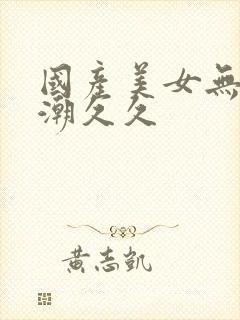 國產美女無
潮久久
黃志凱